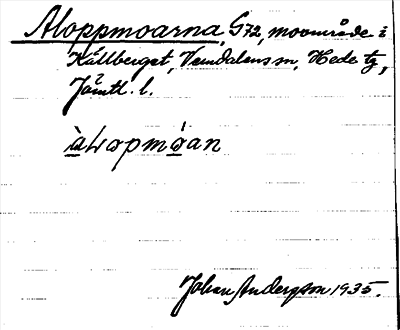 Aloppmoarna, G72, moområde i
Källberget, Vemdalens sn, Hede tg,
Jämtl. l.
àLopmòan
Johan Andersson 1935.